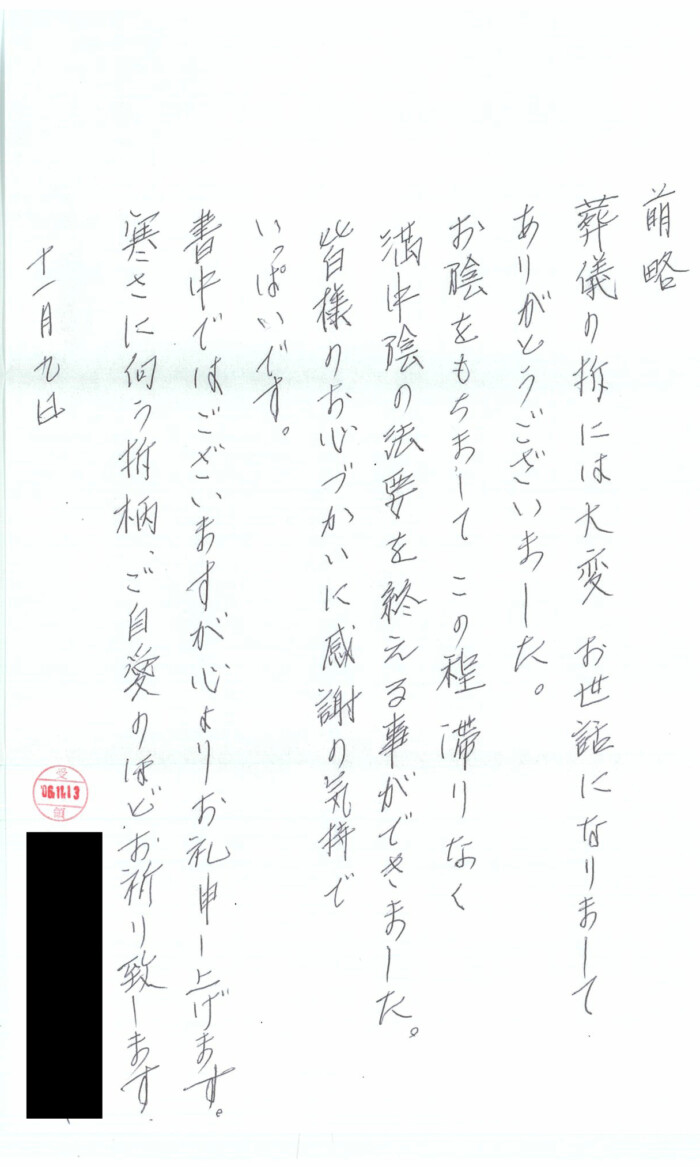 前略
葬儀の折には大変 お世話になりまして
ありがとうございました。
お陰をもちまして この程 滞りなく
満中陰の法要を終える事ができました。
皆様のお心づかいに感謝の気持で
いっぱいです。
書中ではございますが心よりお礼申し上げます。
寒さに向う折柄、ご自愛のほどお祈り致します.
十一月九日
受
'06.11.13
領